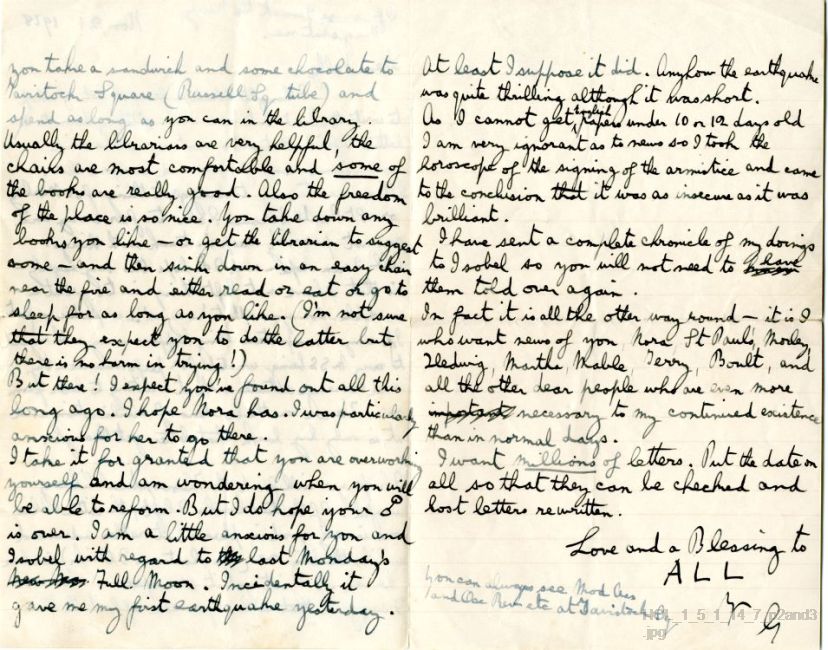 you take a sandwich and some chocolate to
Tavistock Square (Russell Sq tube) and
spend as long as you can in the library.
Usually the librarians are very helpful, the
chairs are most comfortable and some of
the books are really good. Also the freedom
of the place is so nice. You take down any
books you like – or get the librarian to suggest
some – and then sink down in an easy chair
near the fire and either read or eat or go to
sleep for as long as you like. (I'm not sure
that they expect you to do the latter but
there is no harm in trying!)
But there! I expect you've found out all this
long ago. I hope Nora has. I was particularly
anxious for her to go there.
I take it for granted that you are overworking
yourself and am wondering when you will
be able to reform. But I do hope your
is over. I am a little anxious for you and
Isobel with regard to last Monday's
Full Moon. Incidentally it
gave me my first earthquake yesterday.
At least I suppose it did. Anyhow the earthquake
was quite thrilling although it was short.
As I cannot get English papers under 10 or 12 days old
I am very ignorant as to news so I took the
horoscope of the signing of the armistice and came
to the conclusion that it was as insecure as it was
brilliant.
I have sent a complete chronicle of my doings
to Isobel so you will not need to have
them told over again.
In fact it is all the other way round – it is I
who want news of you, Nora, St Paul's, Morley,
Hedwig, Martha, Mable, Terry, Boult, and
all the other dear people who are even more
important necessary to my continued existence
than in normal days.
I want millions of letters. Put the date on
all so that they can be checked and
lost letters rewritten.
Love and a Blessing to
ALL
G
you can always see Mod
and at Tavistock Sq
HOL_1_5_1_14_7_p2and3
.jpg